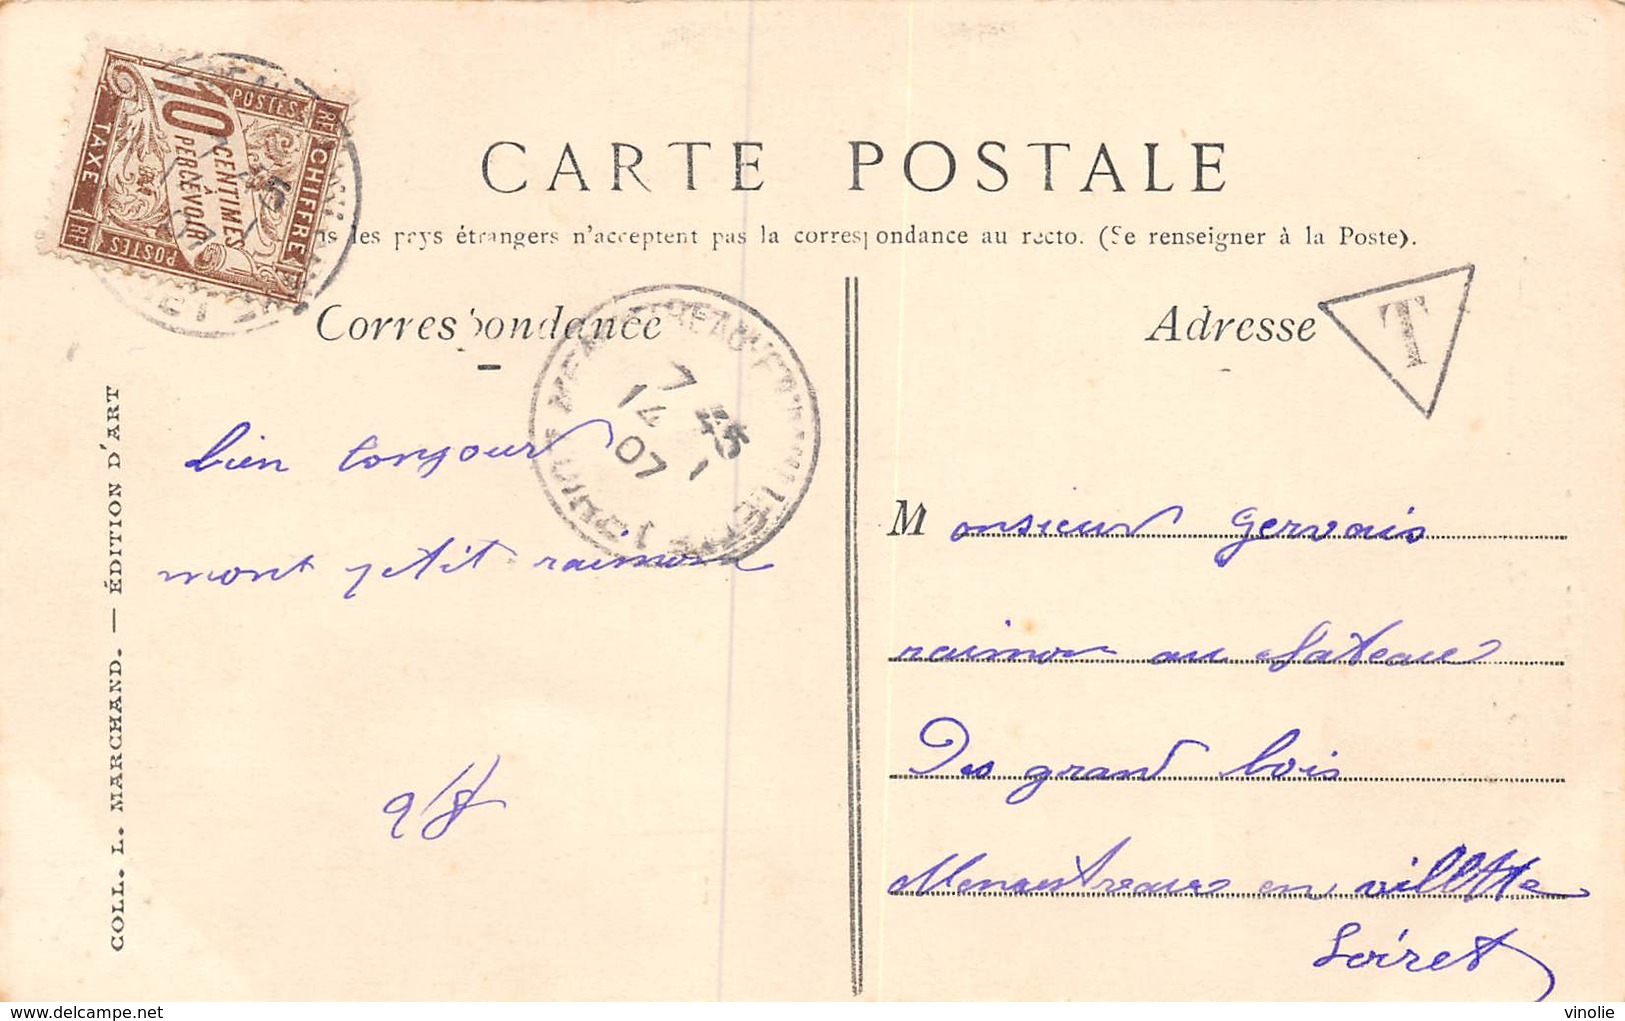 CARTE POSTALE
les pays étrangers n'acceptent pas la correspondance au recto. (Se renseigner à la Poste).
RF CHIFFRE RF
POSTES
10
CENTIMES
À
PERCEVOIR
TAXE
POSTES
RF
Correspondance
Adresse
T
7 45
14 1
07
(LOIRET)
bien tonjour
mont petit raimond
Monsieur gervais
raimon au chateau
Des grand bois
en villette
Loiret
COLL. L. MARCHAND. — ÉDITION D'ART
vinolie